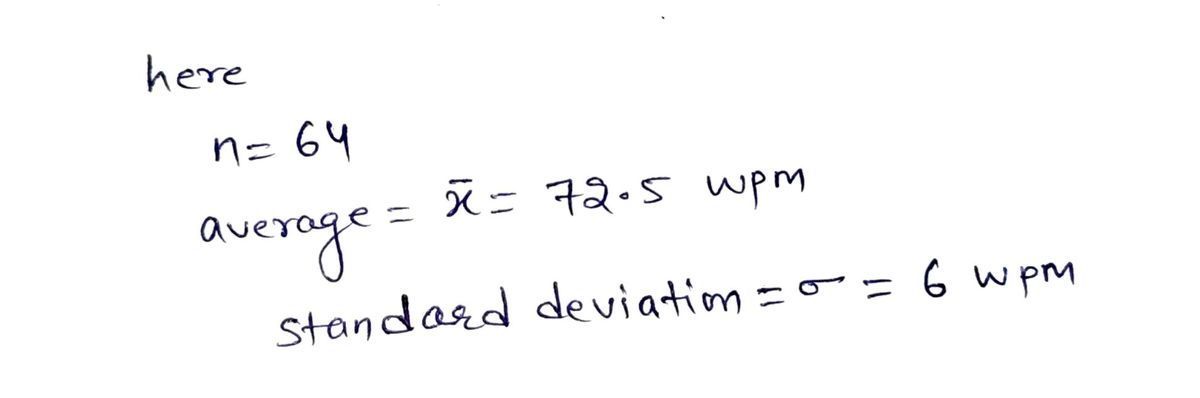 here
n= 64
average = x̄ = 72.5 wpm
standard deviation = σ = 6 wpm